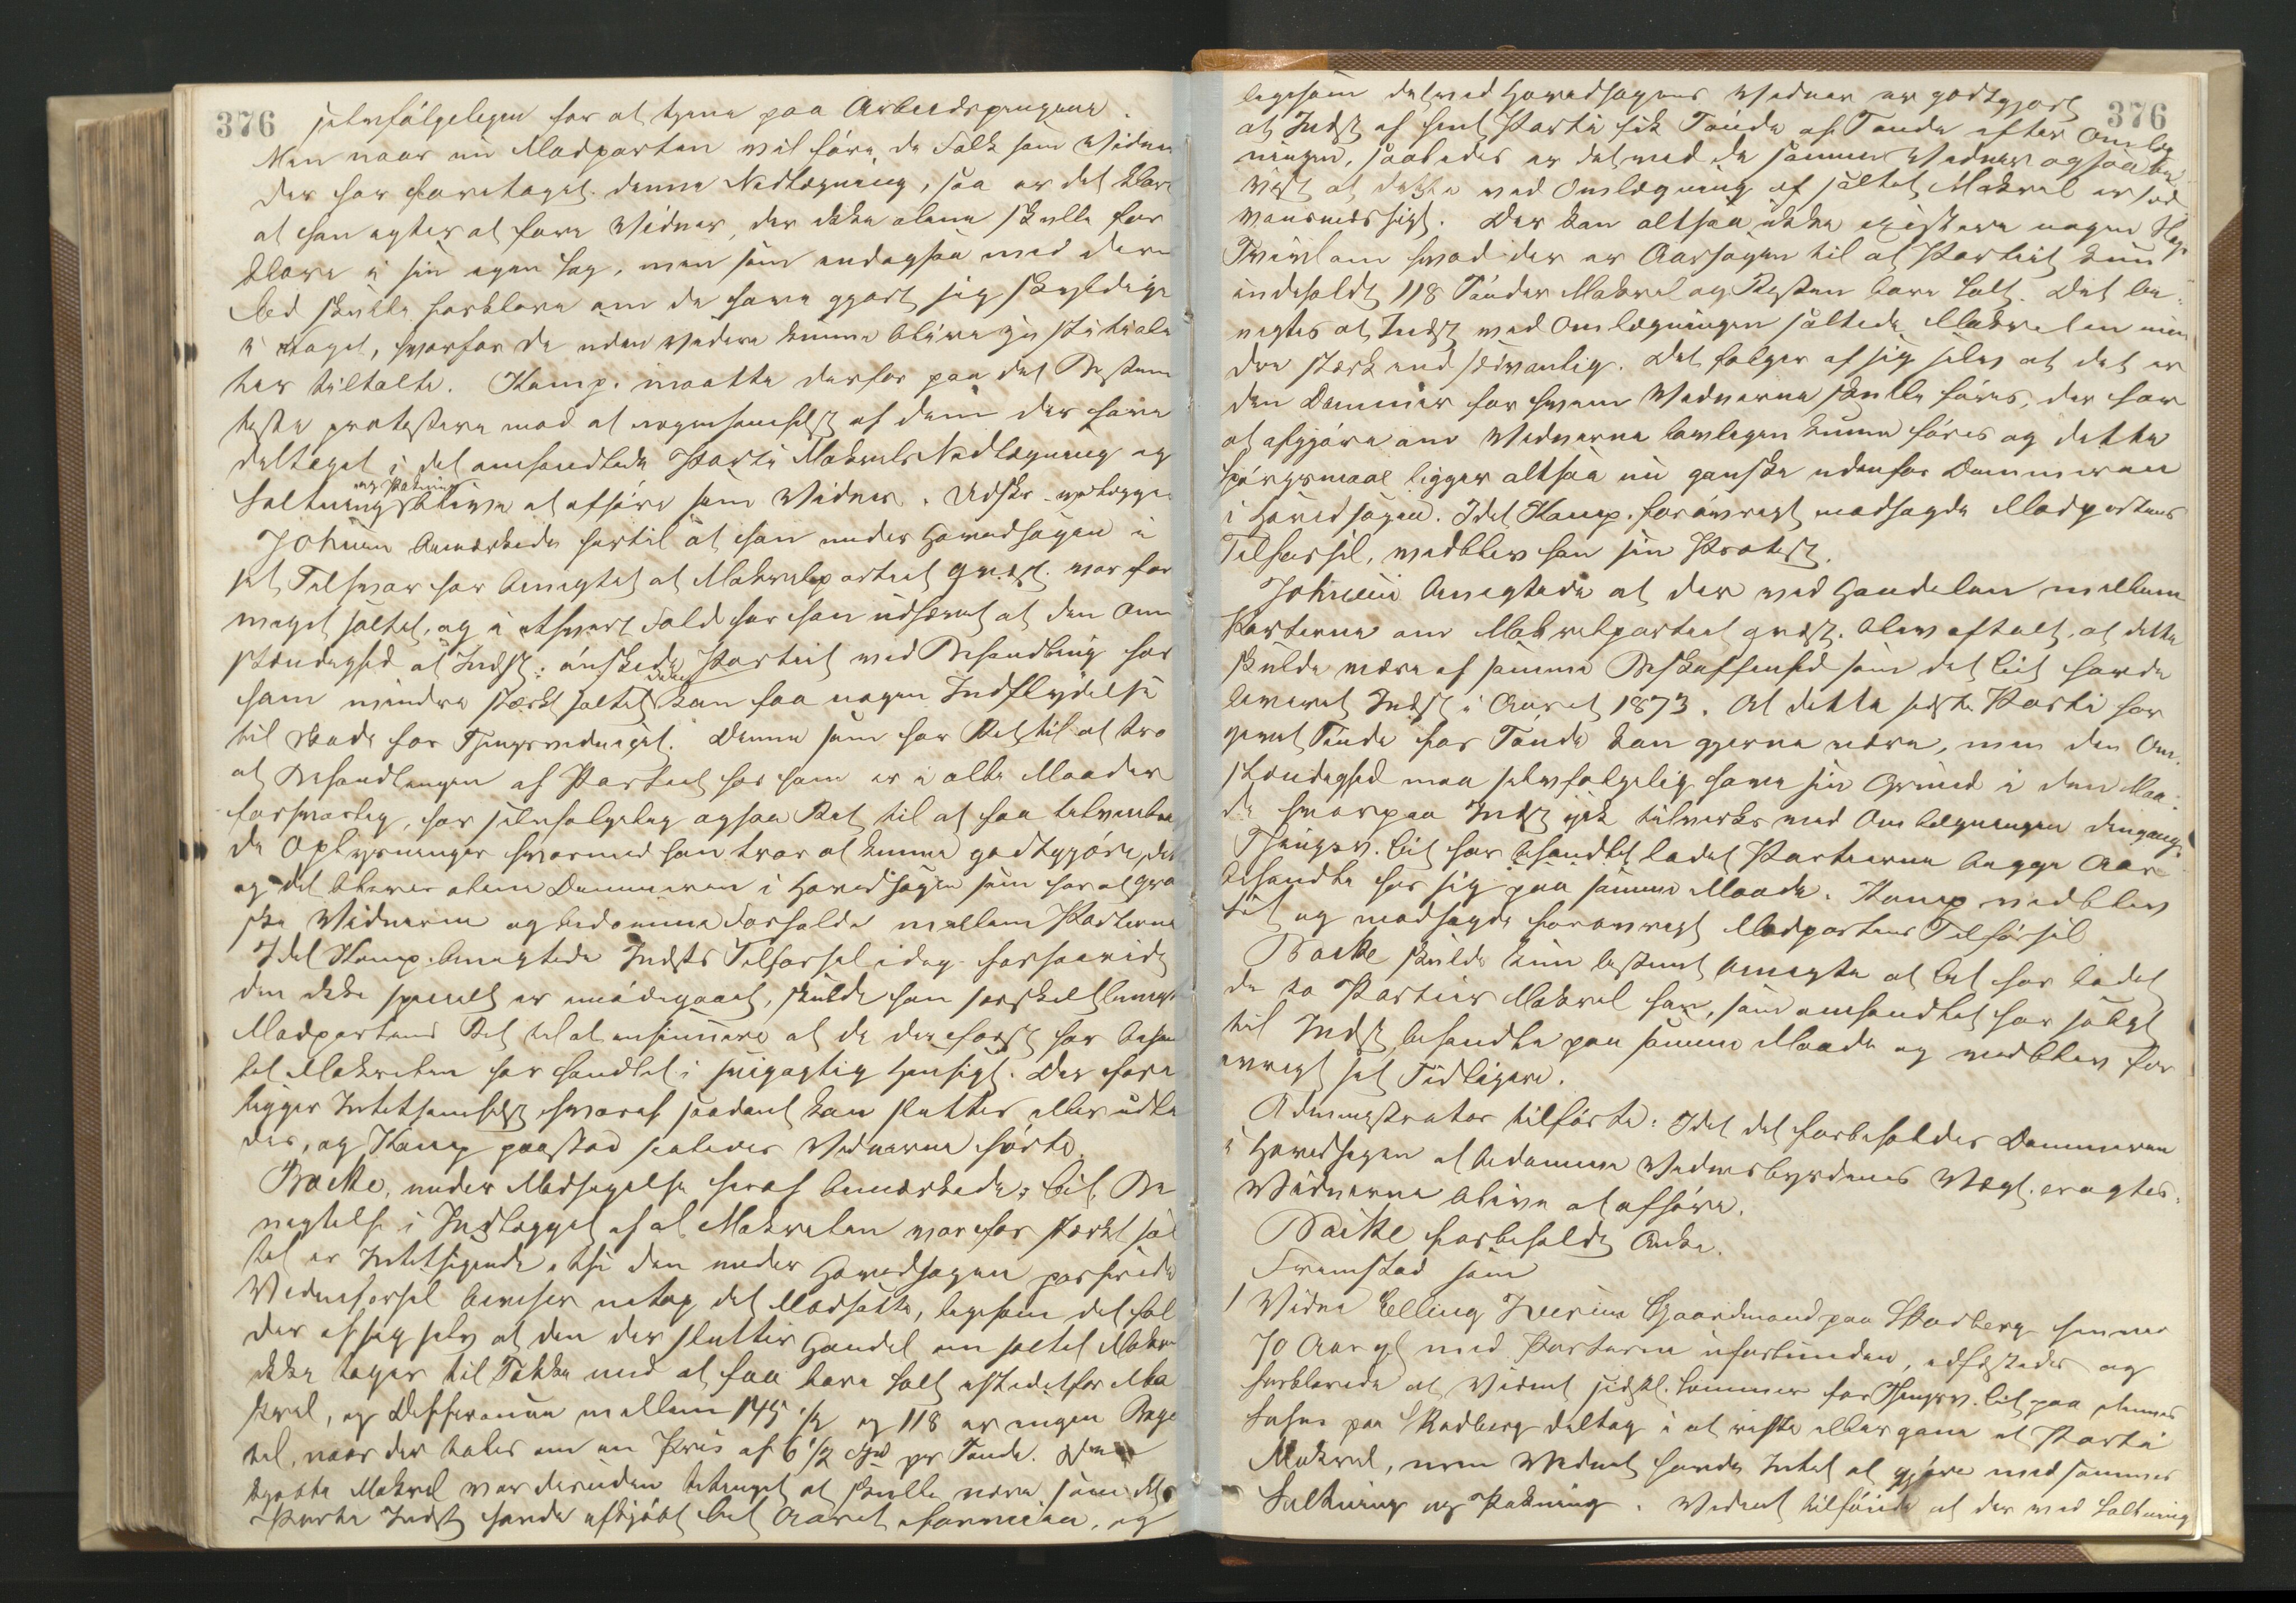 376
selvfølgeligen for at tjene paa Arbeidspengene.
Men naar nu Modparten vil føre de Folk som Vidner
der har foretaget denne Nedlægning, saa er det klart
at han agter at føre Vidner, der ikke alene skulle for
klare i sin egen Sag, men som endogsaa med deres
Eed skulle forklare om de have gjort sig skyldige
i noget, hvorfor de uden videre kunne blive
tiltalte. Kamp. maatte derfor paa det Bestem
teste protestere mod at nogensomhelst af dem der have
deltaget i det omhandlede Parti Makrels Nedlægning og
Saltning og Pakning blive at afhøre som Vidner.
Johnsen bemærkede hertil at han under Hovedsagen i
sit Tilsvar har benegtet at Makrelpartiet qvæst. var for
meget saltet, og i ethvert Fald har han udhævet at den Om
stændighed at Indst. ønskede Partiet ved Behandling hos
ham mindre stærkt saltet ikke kan faa nogen Indflydelse
til Skade for Thingsvidnet. Denne som har Ret til at tro
at Behandlingen af Partiet hos ham er i alle Maader
forsvarlig, har selvfølgelig ogsaa Ret til at faa tilveiebrag
de Oplysninger hvormed han tror at kunne godtgjøre dette
og det bliver alene Dommeren i Hovedsagen som har at
ske Vidnerne og bedømme Forholdet mellem Parterne
Idet Kamp. benegtede Indsts Tilførsel idag forsaavidt
den ikke specielt er imødegaaet, skulde han særskilt benegte
Modpartens Ret til at insinuere at de der først har behand
let Makrelen har handlet i svigagtig Hensigt. Der fore
ligger Intetsomhelst hvoraf saadant kan sluttes eller udle
des, og Kamp paastod saaledes Vidnerne hørte.
Backe, under Modsigelse heraf bemærkede: Cit. Be
negtelse i Indlægget af at Makrelen var for stærkt sal
tet er Intetsigende, thi den under Hovedsagen passerede
Vidneførsel beviser netop det Modsatte, ligesom det føl
der af sig selv at den der slutter Handel om saltet Makrel
ikke tager til Takke med at faa bare Salt istedetfor Ma
krel, og Differencen mellem 145 1/2 og 118 er ingen Baga
tel, naar der tales om en Pris af 6 1/2 Spd pr Tønde.
kjøbte Makrel var desuden betinget at skulle være som det
Parti Indst havde afkjøbt Cit Aaret forinden, og
376
ligesom det ved Hovedsagens Vidner er godtgjort
at Indst af hint Parti fik Tønde af Tønde efter Omlæg
ningen, saaledes er det ved de samme Vidner ogsaa be
vist at dette ved Omlægning af saltet Makrel er sæd
vansmæssigt. Der kan altsaa ikke existere nogen Slags
Tvivl om hvad der er Aarsagen til at Partiet kun
indeholdt 118 Tønder Makrel og Resten bare Salt. Det be-
negtes at Indst ved Omlægningen saltede Makrelen min
dre stærk end sædvanlig. Det følger af sig selv at det er
den Dommer for hvem Vidnerne skulle føres, der har
at afgjøre om Vidnerne lovligen kunne føres og dette
Spørgsmaal ligger altsaa nu ganske udenfor Dommeren
i Hovedsagen. Idet Kamp. forøvrigt modsagde Modpartens
Tilførsel, vedblev han sin Protest.
Johnsen benegtede at der ved Handelen mellem
Parterne om Makrelpartiet qvæst. blev aftalt, at dette
skulde være af samme Beskaffenhed som det Cit havde
leveret Indst i Aaret 1873. At dette sidste Parti har
givet Tønde for Tønde kan gjerne være, men den Om-
stændighed maa selvfølgelig have sin Grund i den Maa-
de hvorpaa Indst gik tilverks med Omlægningen dengang.
Thingsv. Cit har behandlet ladet Partierne begge Aar
behandle hos sig paa samme Maade. Kamp vedblev
sit og modsagde forøvrigt Modpartens Tilførsel
Backe skulde kun bestemt benegte at Cit har ladet
de to Partier Makrel han, som omhandlet har solgt
til Indst behandle paa samme Maade og vedblev for
øvrigt sit Tidligere.
Administrator tilførte: Idet det forbeholdes Dommeren
i Hovedsagen at bedømme Vidnesbyrdenes Vægt, eragtes:
Vidnerne blive at afhøre.
Backe forbeholdt Anke.
Fremstod som
1 Vidne Elling Iversen Gaardmand paa Skarberg henved
70 Aar gl med Parterne uforbunden, edfæstedes og
forklarede at Vidnet sidstl. Sommer for Thingsv. Cit paa dennes
paa Skadberg deltog i at riste eller gane et Parti
Makrel, men Vidnet havde Intet at gjøre med sammes
Saltning og Pakning. Vidnet tilføiede at der ved Saltning